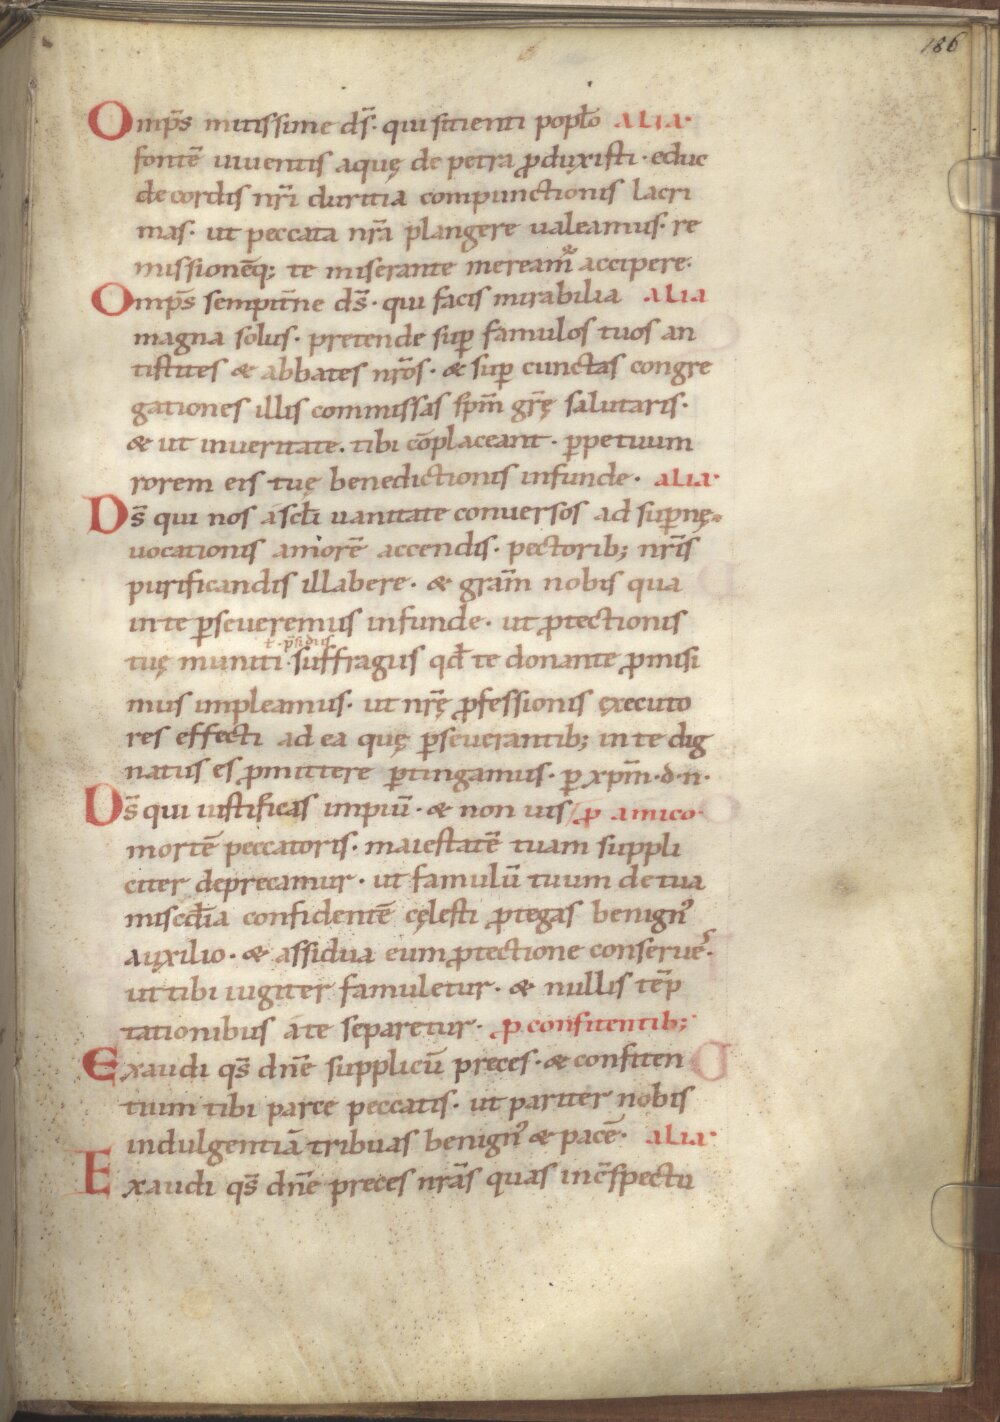 186
Omp̄s mitissime ds̄· qui sitienti popłо alia·
fontē uiuentis aquę de petra ꝓduxisti· educ
de cordis nr̄i duritia compunctionis lacri
mas· ut peccata nr̄a plangere ualeamus· re
missionēq; te miserante meream̄ accipere·
Omp̄s sempit̄ne ds̄· qui facis mirabilia alia
magna solus· pretende suꝑ famulos tuos an
tistites & abbates nr̄os· & suꝑ cunctas congre
gationes illis commissas sp̄m gr̄ę salutaris·
& ut inueritate· tibi cōplaceant· ꝑpetuum
rorem eis tuę benedictionis infunde· alia·
Ds̄ qui nos a sc̄łi uanitate conuersos ad suꝑnę
uocationis amorē accendis· pectorib; nr̄is
purificandis illabere· & gram̄ nobis qua
inte ꝑseueremus infunde· ut ꝓtectionis
ł p̄sidiis
tuę muniti· suffragiis qđ te donante ꝓmisi
mus impleamus· ut nr̄ę ꝓfessionis ęxecuto
res effecti ad ea quę ꝑseuerantib; inte dig
natus es ꝓmittere ꝑtingamus· ꝑ xp̄m·d·n·
Ds̄ qui iustificas impiū· & non uis ꝓ amico·
mortē peccatoris· maiestatē tuam suppli
citer deprecamur· ut famulū tuum detua
miscđia confidentē cęlesti ꝓtegas benignꝰ
auxilio· & assidua eum ꝓtectione conserues·
ut tibi iugiter famuletur· & nullis tēp
tationibus ate separetur· ꝓ confitentib;
Exaudi qs̄ dn̄e supplicū preces· & confiten
tium tibi parce peccatis· ut pariter nobis
indulgentiā tribuas benignꝰ & pacē· alia·
Exaudi qs̄ dn̄e preces nr̄as quas inc̄spectu